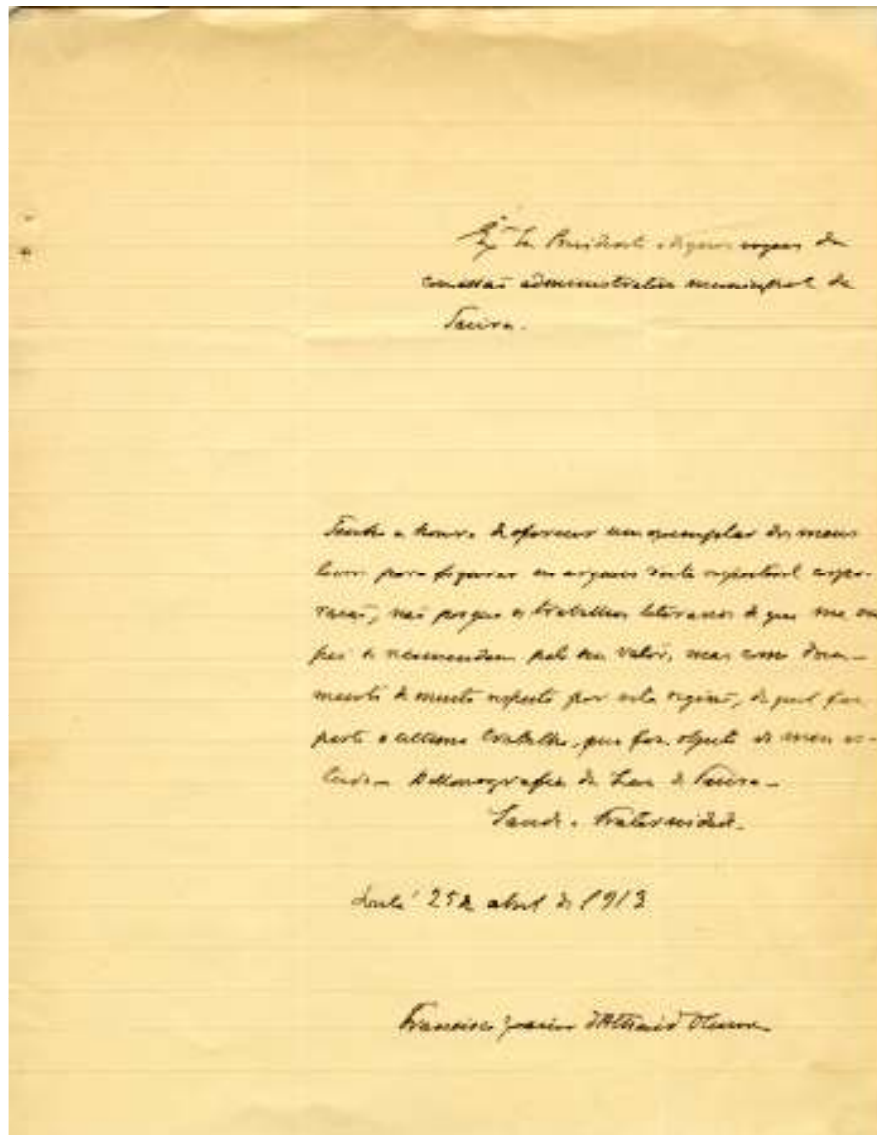 Exmo Sr Presidente e dignos vogaes da
comissão administrativa municipal de
Tavira.
Tenho a honra de oferecer um exemplar dos meus
livros para figurar no arquivo desta respeitavel corpo-
ração, não porque os trabalhos literarios de que me ocu-
pei se recomendam pelo seu valor, mas como docu-
mento de muito respeito por esta região, da qual faz
parte o ultimo trabalho, que faz objecto do meu es-
tudo — A Monografia da Luz de Tavira —
Saude e Fraternidade.
Loulé 25 de abril de 1913
Francisco Xavier d'Athaide Oliveira